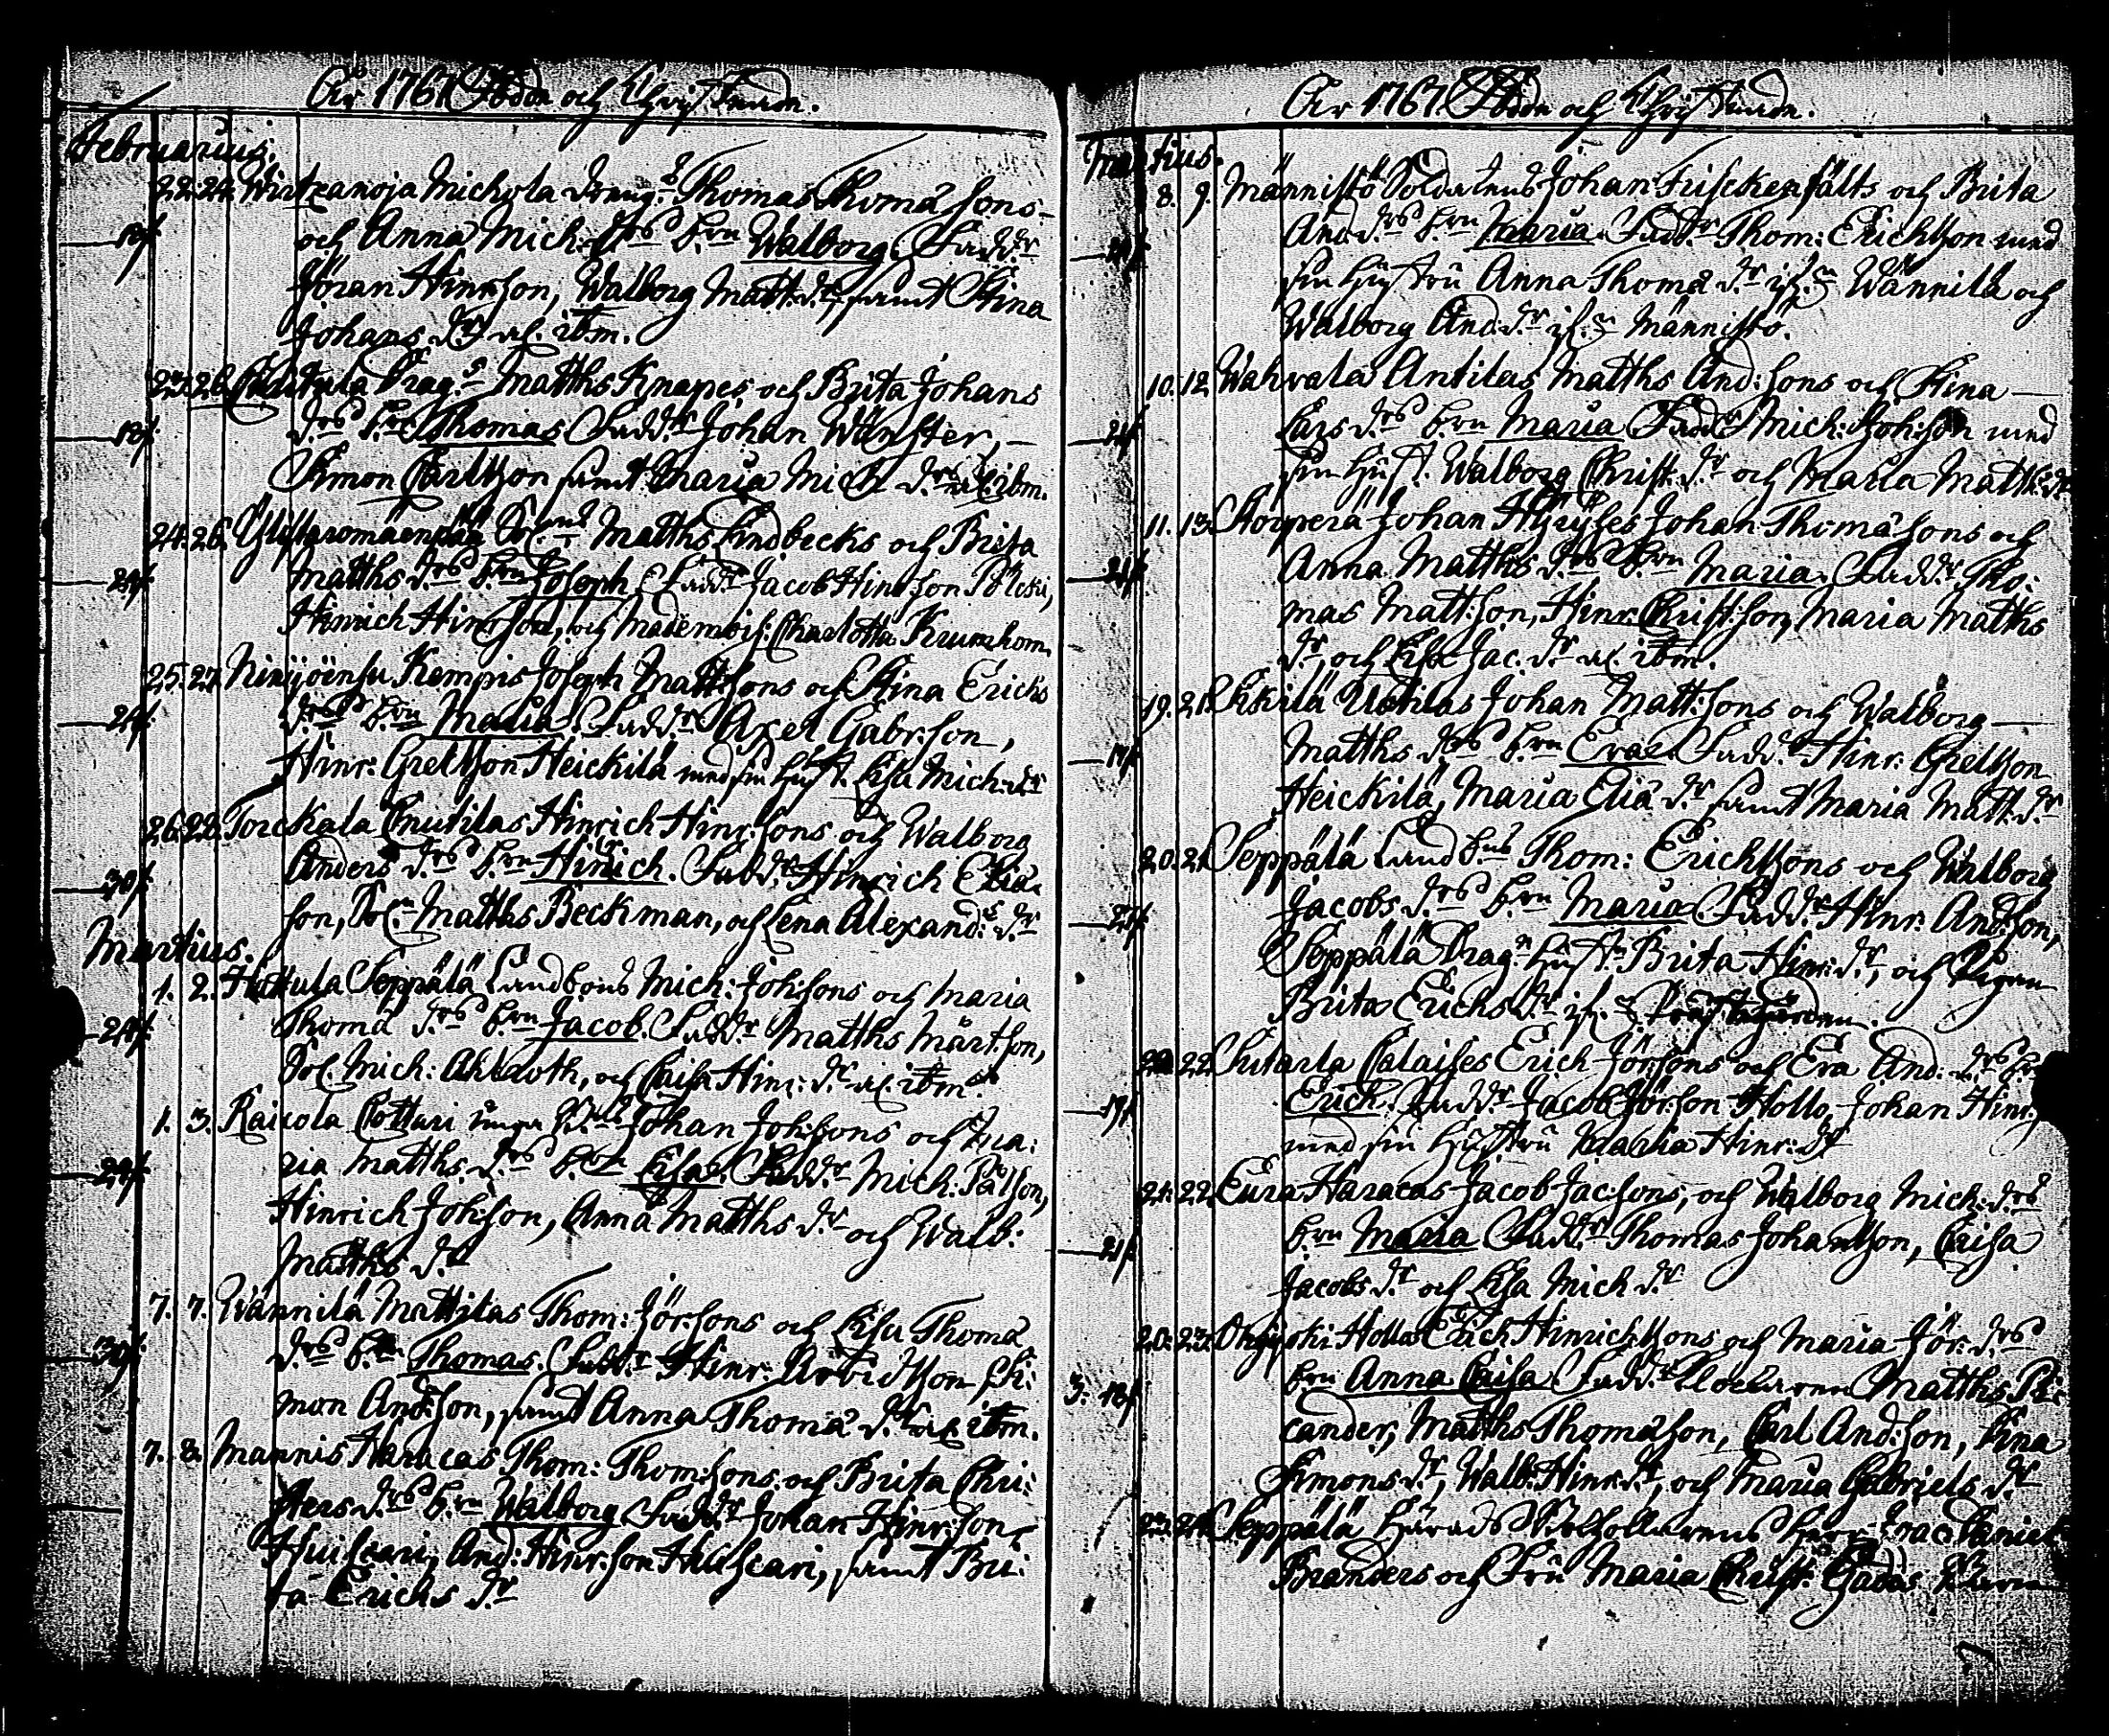 År 1767 Födde och Christnade.
Februarius.
22. 24. Wirtzanoja Michola Thomas Thomæ Sons
och Anna Mich: drs brn Walborg. Fadd:r
Jöran Hinr:son, Walborg Matt: dr, samt Stina
Johans dr al. ibm.
Drag:s Matths Knapes och Brita Johans
drs Thomas Fadd:r Johan Wänster,
Simon Carlsson samt Maria Mich dr al. ibm.
24. 26. Sol: Matths Lindbecks och Brita
Matths drs brn Joseph. Fadd:r Jacob Hinr:son
Hinrich Hinr:son, och Mademois: Charlotta Krumhom.
25. 27. Kempis Joseph Matt:sons och Stina Erichs
drs brn Maria. Fadd:r Axel Gabr:son,
Hinr: Grelsson Heickilä med sin hust. Lisa Mich: dr
26. 28. Torckala Cnutilas Hinrich Hinr:sons och Walborg
Anders drs brn Hinrich. Fadd:r Hinrich Eliæ
son, Sol: Matths Beckman, och Lena Alexand: dr
Martius.
1. 2. Hottula Seppälä Landbons Mich: Joh:sons och Maria
Thomæ drs brn Jacob. Fadd:r Matths Mårt:son,
Sol. Mich: Ahlroth, och Caisa Hinr: dr al. ibm.
1. 3. Raicola Cottari Johan Joh:sons och Ma:
ria Matths drs Lisa. Fadd:r Mich: Pålson,
Hinrich Joh:son, Anna Matths dr och Walb:
Matths dr
7. 7. Wännilä Mattilas Thom: Jör:sons och Lisa Thomæ
drs Thomas. Fadd:r Hinr: Arvidsson, Si:
mon And:son, samt Anna Thomæ dr al. ibm.
7. 8. Mannis Haracas Thom: Thom:sons och Brita Chri:
sters drs brn Walborg. Fadd:r Johan Hinr:son
Huiscari, And: Hinr:son Huiscari, samt Bri:
ta Erichs dr
År 1767 Födde och Christnade.
Martius.
8. 9. Männistö Soldatens Johan Friskenfälts och Brita
And: drs brn Maria. Fadd:r Thom: Erichsson med
sin hustru Anna Thomæ dr if:n Wännilä och
Walborg And: dr if:n Männistö.
10. 12. Wahvala Antilas Matths And:sons och Stina
Lars drs brn Maria Fadd:r Mich: Joh:son med
sin hust. Walborg Christ: dr och Maria Matths: dr
11. 13. Storperä Johan Johan Thomæ Sons och
Anna Matths drs brn Maria. Fadd:r Tho:
mas Matt:son, Hinr: Christ:son, Maria Matths
dr, och Lisa Jac. dr al. ibm.
19. 21. Eskilä Uotilas Johan Matt:sons och Walborg
Matths drs brn Eva. Fadd:r Hinr: Grelsson
Heickilä, Maria Eliæ dr samt Maria Matt: dr
20. 21. Seppälä Landb:ns Thom: Erichssons och Walborg
Jacobs drs brn Maria. Fadd:r Hinr: And:son,
Seppälä Drag:n hust. Brita Hinr: dr, och Pigan
Brita Erichs dr if:n Prästegården.
22. Calaises Erich Jör:sons och Eva And: drs
Erich. Fadd:r Jacob Jör:son Hollo, Johan Hinr:
med sin hustru Maria Hinr: dr
21. 22. Eura Haracas Jacob Jac:sons, och Walborg Mich: drs
brn Maria Fadd:r Thomas Johansson, Caisa
Jacobs dr och Lisa Mich dr
20. 23. Hollos Erich Hinrichssons och Maria Jör: drs
brn Anna Caisa. Fadd:r Klockaren Matths
cander, Matths Thomæson, Carl And:son, Stina
Simons dr, Walb: Hinr: dr, och Maria Gabriels dr
Seppälä Härads Befallarens Herr Isac Daniel
Branders och Fru Maria Christ: